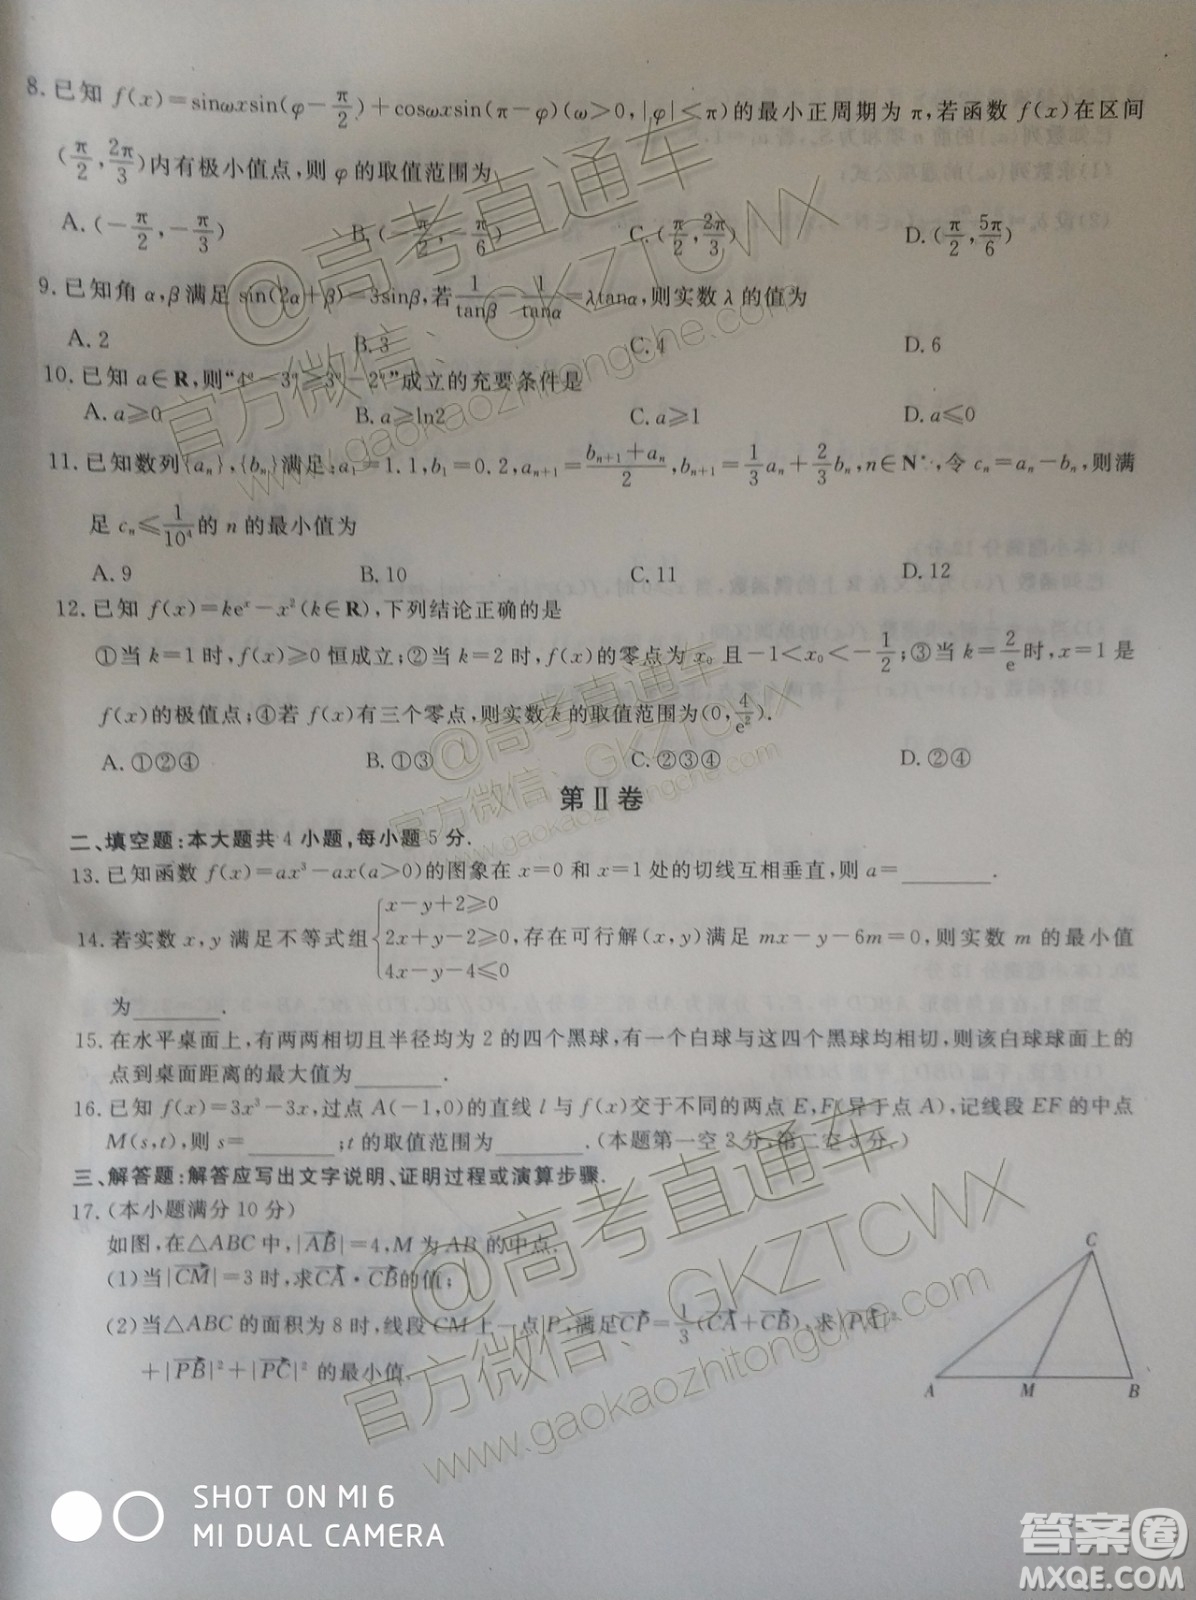 8.已知 f(x)=sinωxsin(φ-π/2)+cosωxsin(π-φ)(ω>0,|φ|<π)的最小正周期为 π,若函数 f(x)在区间
(π/2,2π/3)内有极小值点,则 φ 的取值范围为
A.(-π/2,-π/3) B.(-π/2,-π/6) C.(π/2,2π/3) D.(π/2,5π/6)
9.已知角 α,β满足 sin(2α+β)=3sinβ,若1/tanβ-1/tanα=λtanα,则实数 λ 的值为
A.2 B.3 C.4 D.6
10.已知 a∈R,则“4ᵃ-3ᵃ≥3ᵃ-2ᵃ”成立的充要条件是
A.a≥0 B.a≥ln2 C.a≥1 D.a≤0
11.已知数列{aₙ},{bₙ}满足:a₁=1.1,b₁=0.2,aₙ₊₁=(bₙ₊₁+aₙ)/2,bₙ₊₁=1/3aₙ+2/3bₙ,n∈N*,令 cₙ=aₙ-bₙ,则满
足 cₙ≤1/10⁴的 n 的最小值为
A.9 B.10 C.11 D.12
12.已知 f(x)=keˣ-x²(k∈R),下列结论正确的是
①当 k=1 时,f(x)≥0 恒成立;②当 k=2 时,f(x)的零点为 x₀ 且-1<x₀<-1/2;③当 k=2/e时,x=1 是
f(x)的极值点;④若 f(x)有三个零点,则实数 k 的取值范围为(0,4/e²).
A.①②④ B.①③ C.②③④ D.②④
第Ⅱ卷
二、填空题:本大题共 4 小题,每小题 5 分.
13.已知函数 f(x)=ax³-ax(a>0)的图象在 x=0 和 x=1 处的切线互相垂直,则 a=______.
14.若实数 x,y 满足不等式组{x-y+2≥0 2x+y-2≥0 4x-y-4≤0,存在可行解(x,y)满足 mx-y-6m=0,则实数 m 的最小值
为______.
15.在水平桌面上,有两两相切且半径均为 2 的四个黑球,有一个白球与这四个黑球均相切,则该白球球面上的
点到桌面距离的最大值为______.
16.已知 f(x)=3x³-3x,过点 A(-1,0)的直线 l 与 f(x)交于不同的两点 E,F(异于点 A),记线段 EF 的中点
M(s,t),则 s=______;t 的取值范围为______.(本题第一空 2 分,第二空 3 分.)
三、解答题:解答应写出文字说明、证明过程或演算步骤.
17.(本小题满分 10 分)
如图,在△ABC 中,|AB|=4,M 为 AB 的中点.
(1)当|CM|=3 时,求CA·CB的值;
(2)当△ABC 的面积为 8 时,线段 CM 上一点 P,满足CP=1/3(CA+CB),求|PA|²
+|PB|²+|PC|² 的最小值.
C
A M B
@高考直通车
官方微信:GKZTCWX
www.gaokaozhitongche.com
@高考直通车
官方微信:GKZTCWX
www.gaokaozhitongche.com
@高考直通车
官方微信:GKZTCWX
www.gaokaozhitongche.com
SHOT ON MI 6
MI DUAL CAMERA
答案圈
MXQE.COM